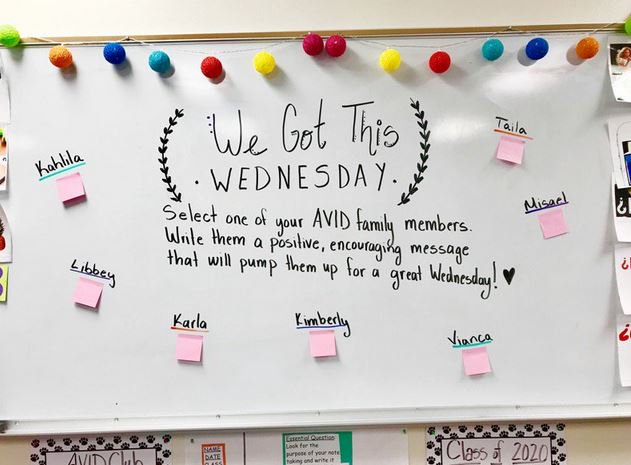 We Got This
· WEDNESDAY ·
Select one of your AVID family members.
Write them a positive, encouraging message
that will pump them up for a great Wednesday! ♥
Kahlila
Taila
Misael
Libbey
Karla
Kimberly
Vianca
AVID Club
NAME
DATE
CLASS
Essential Question:
Look for the
purpose of your note
taking and write it
Class of 2020